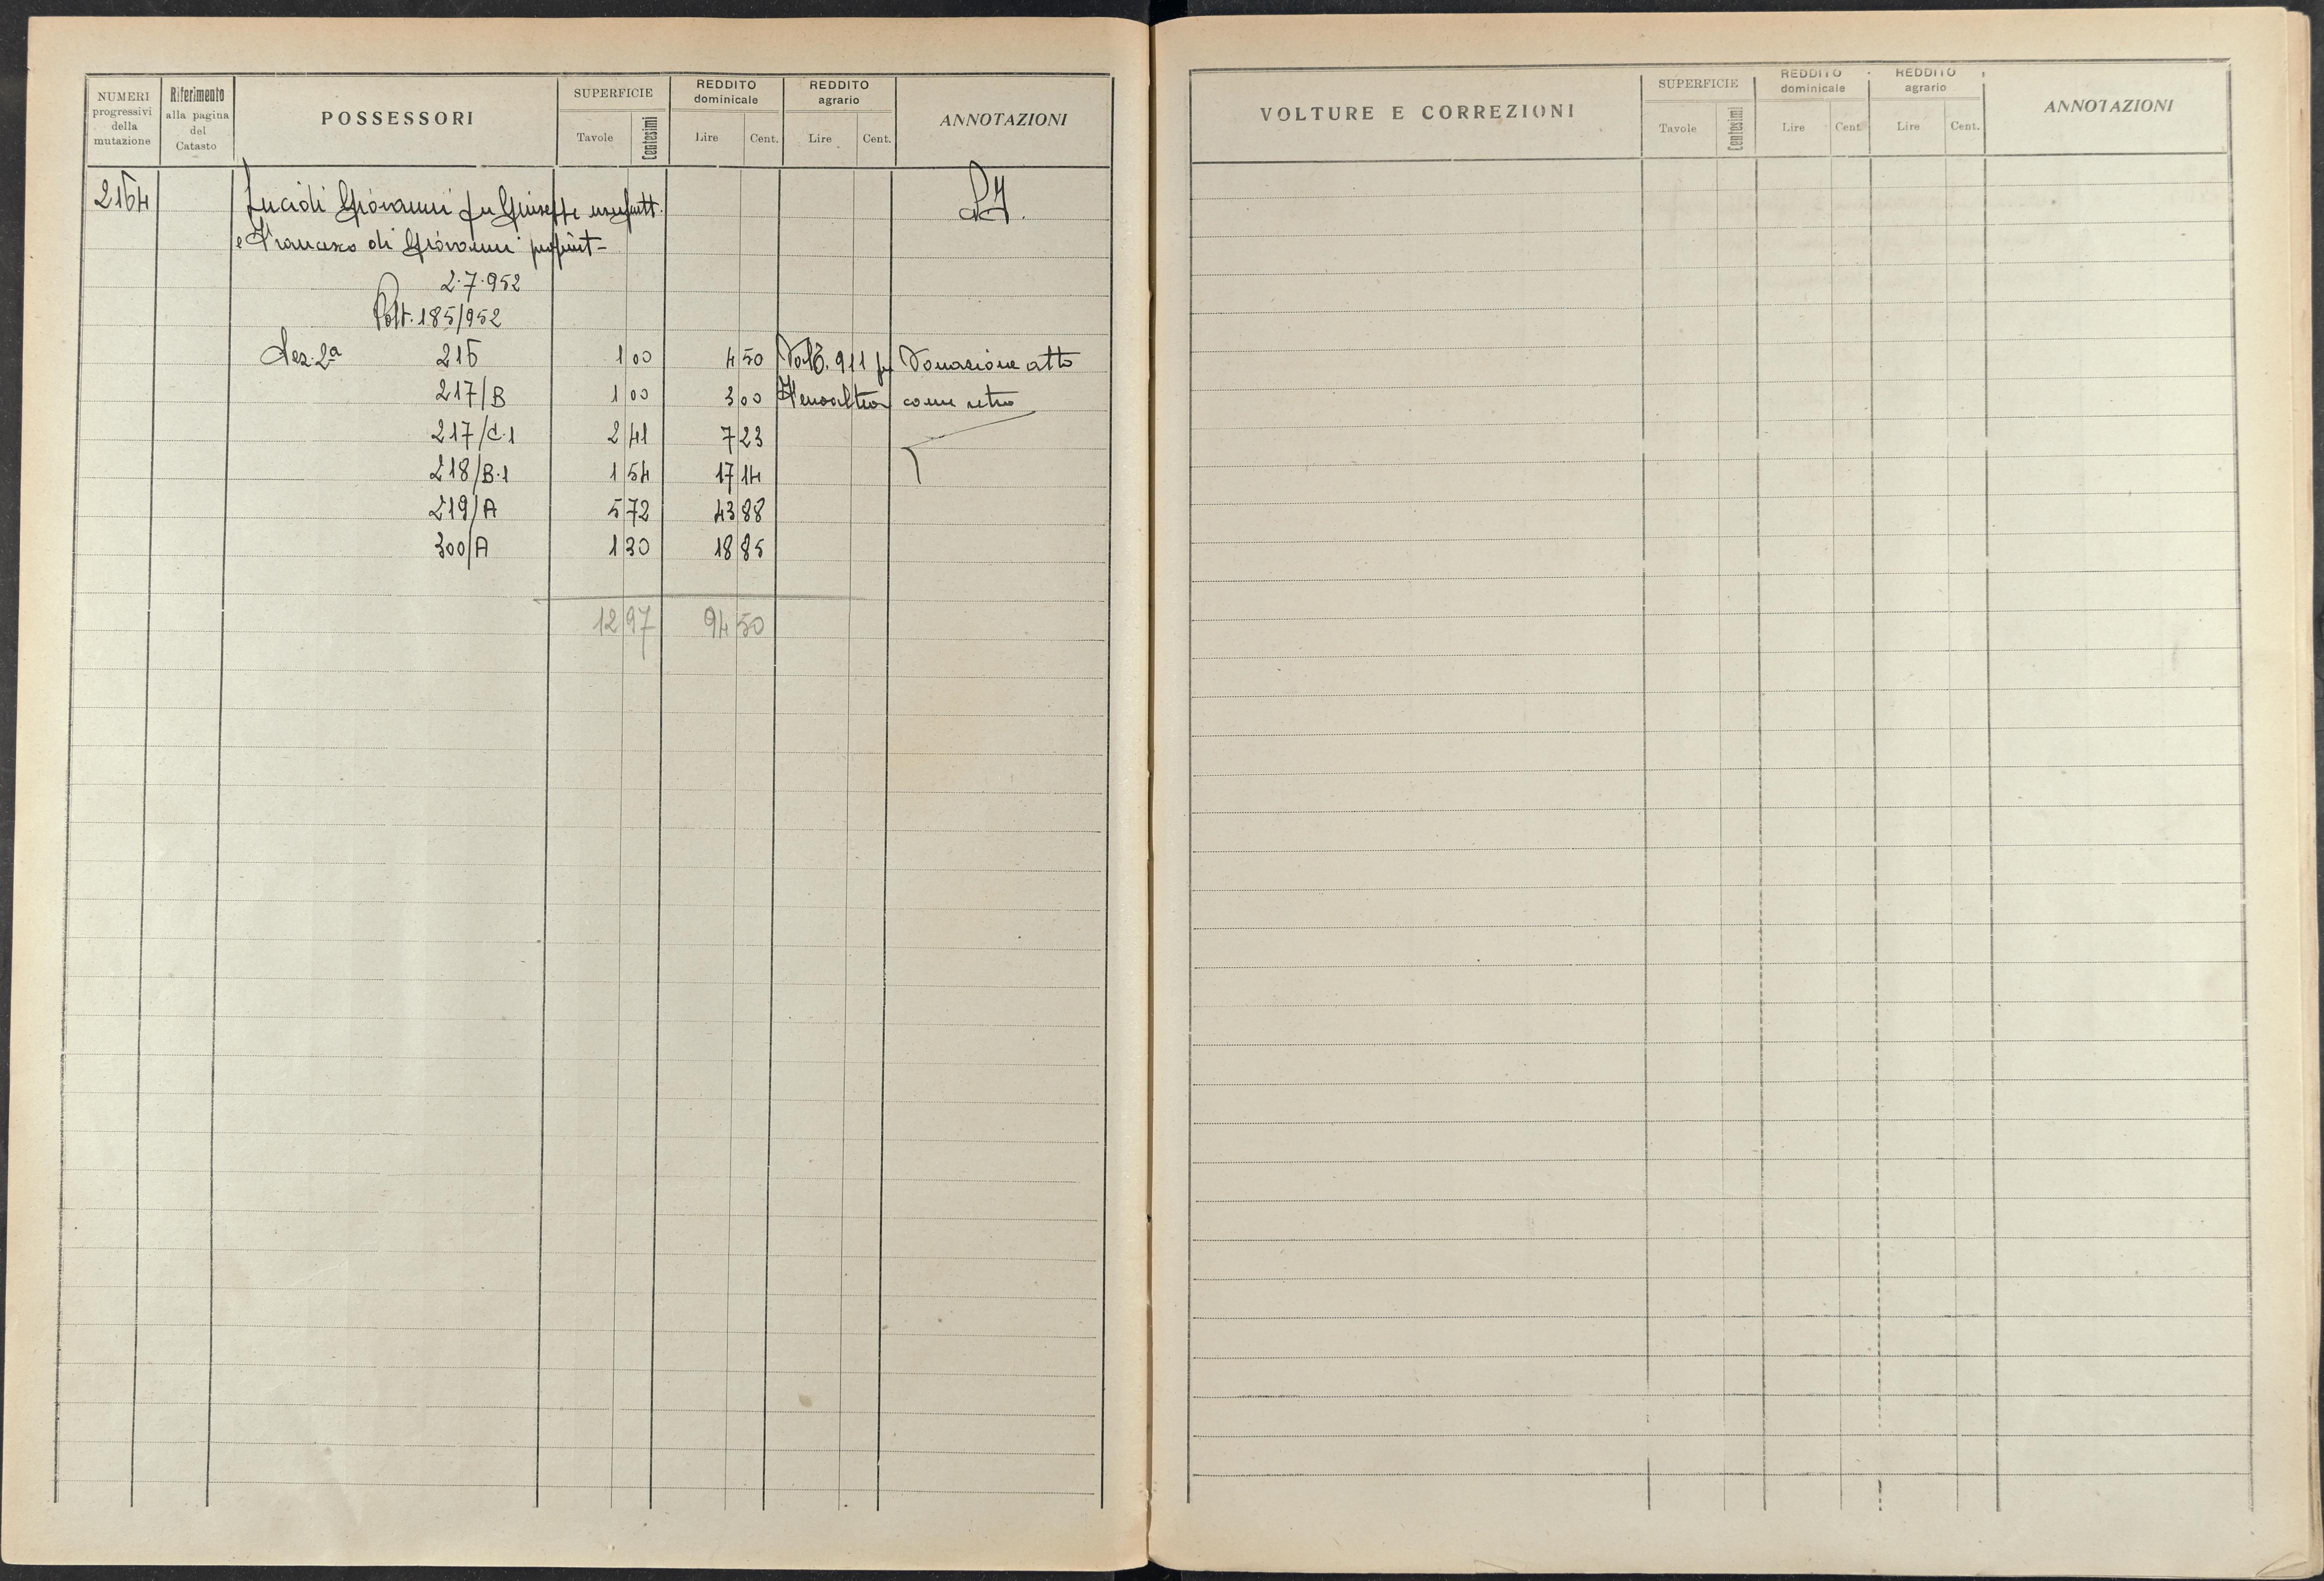 NUMERI progressivi della mutazione
Riferimento alla pagina del Catasto
POSSESSORI
SUPERFICIE
Tavole
Centesimi
REDDITO dominicale
Lire
Cent.
REDDITO agrario
Lire
Cent.
ANNOTAZIONI
2164
Lucidi Giovanni fu Giuseppe usufrutt.
e Francesco di Giovanni propriet-
2.7.952
Volt. 185/952
Sez. 2ª 216 1 00 4 50 Donazione atto
217/B 1 00 3 00 come retro
217/C.1 2 41 7 23
218/B.1 1 54 17 14
219/A 5 72 43 88
300/A 1 30 18 85
12 97 94 50
VOLTURE E CORREZIONI
SUPERFICIE
Tavole
Centesimi
REDDITO dominicale
Lire
Cent.
REDDITO agrario
Lire
Cent.
ANNOTAZIONI